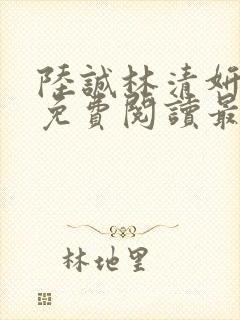 陸誠林清妍
免費閱讀最
林地里